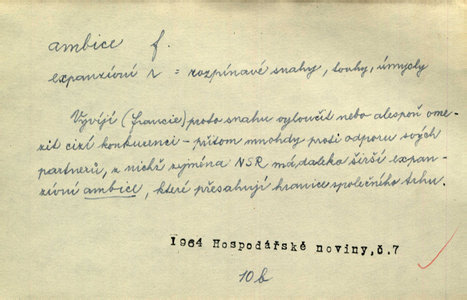 ambice f.
expanzivní ~ = rozpínavé snahy, touhy, úmysly
Vyvíjí (Francie) proto snahu vyloučit nebo alespoň ome-
zit cizí konkurenci - přitom mnohdy proti odporu svých
partnerů, z nichž zejména NSR má daleko širší expan-
zivní ambice, které přesahují hranice společného trhu.
1964 Hospodářské noviny,č.7
10b